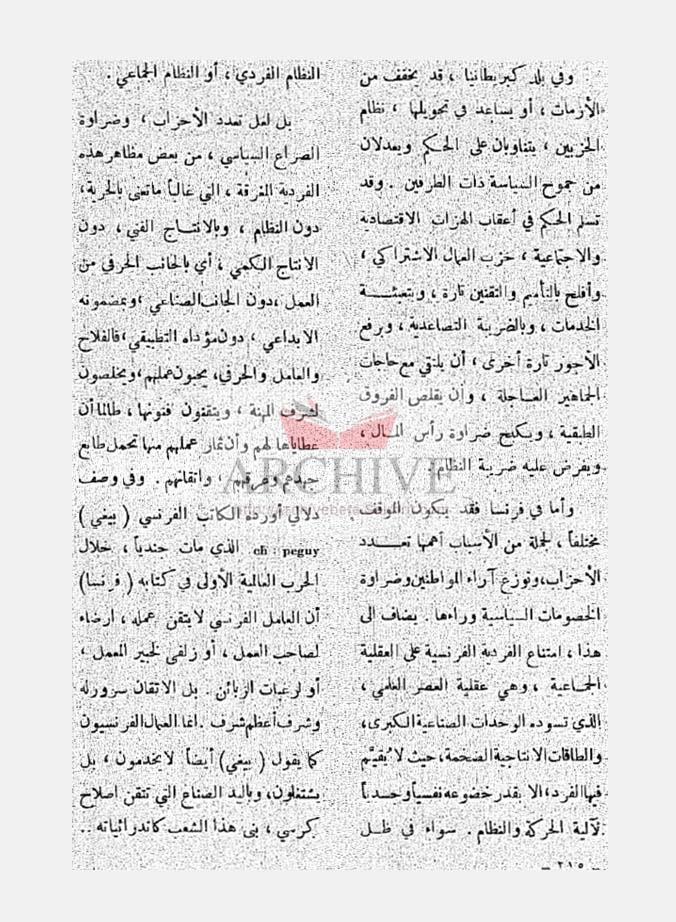 وفي بلد كبريطانيا ، قد يخفف من
الأزمات ، أو يساعد في تحويلها ، نظام
الحزبين ، يتناوبان على الحكم ويعدلان
من جموح السياسة ذات الطرفين . وقد
تسلم الحكم في أعقاب الهزات الاقتصادية
والاجتماعية ، حزب العمال الاشتراكي ،
وأفلح بالتأميم والتقنين تارة ، وبتعبئة
الخدمات ، وبالضريبة التصاعدية ، وبرفع
الأجور تارة أخرى ، أن يلتقي مع حاجات
الجماهير العاجلة ، وان يقلص الفروق
الطبقية ، ويكبح ضراوة رأس المال ،
ويفرض عليه ضريبة النظام .
وأما في فرنسا فقد يكون الموقف
مختلفاً ، لجملة من الأسباب أهمها تعدد
الأحزاب ، وتوزع آراء المواطنين وضراوة
الخصومات السياسية وراءها . يضاف الى
هذا ، امتناع الفردية الفرنسية على العقلية
الجماعية ، وهي عقلية العصر العلمي ،
الذي تسوده الوحدات الصناعية الكبرى ،
والطاقات الانتاجية الضخمة ، حيث لا يُقيَّم
فيها الفرد ، الا بقدر خضوعه نفسياً وجسدياً
لآلية الحركة والنظام . سواء في ظل
النظام الفردي ، أو النظام الجماعي .
بل لعل تعدد الأحزاب ، وضراوة
الصراع السياسي ، من بعض مظاهر هذه
الفردية المفرقة ، التي غالباً ما تعنى بالحرية ،
دون النظام ، وبالانتاج الفني ، دون
الانتاج الكمي ، أي بالجانب الحرفي من
العمل ، دون الجانب الصناعي ، وبمضمونه
الابداعي ، دون مؤداه التطبيقي ، فالفلاح
والعامل والحرفي ، يحبون عملهم ، ويخلصون
لشرف المهنة ، ويتقنون فنونها ، طالما أن
عطاياها لهم وأن ثمار عملهم منها تحمل طابع
جهدهم وعرقهم ، واتقانهم . وفي وصف
دلالي أورده الكاتب الفرنسي ( بيغي )
ch : peguy الذي مات جندياً ، خلال
الحرب العالمية الأولى في كتابه ( فرنسا )
أن العامل الفرنسي لا يتقن عمله ، ارضاء
لصاحب العمل ، أو زلفى لخبير المعمل ،
أو لرغبات الزبائن . بل الاتقان سرور له
وشرف أعظم شرف . انما العمال الفرنسيون
كما يقول ( بيغي ) أيضاً لا يخدمون ، بل
يشتغلون ، وباليد الصناع التي تتقن اصلاح
كرسي ، بنى هذا الشعب كاتدرائياته ..
– ٢١٥ –
ARCHIVE